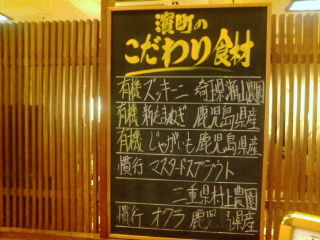 濱町の
こだわり食材
有機 ズッキーニ 埼玉県 瀬山農園
有機 新たまねぎ 鹿児島県産
有機 じゃがいも 鹿児島県産
慣行 マスタードスプラウト
三重県村上農園
慣行 オクラ 鹿児島県産